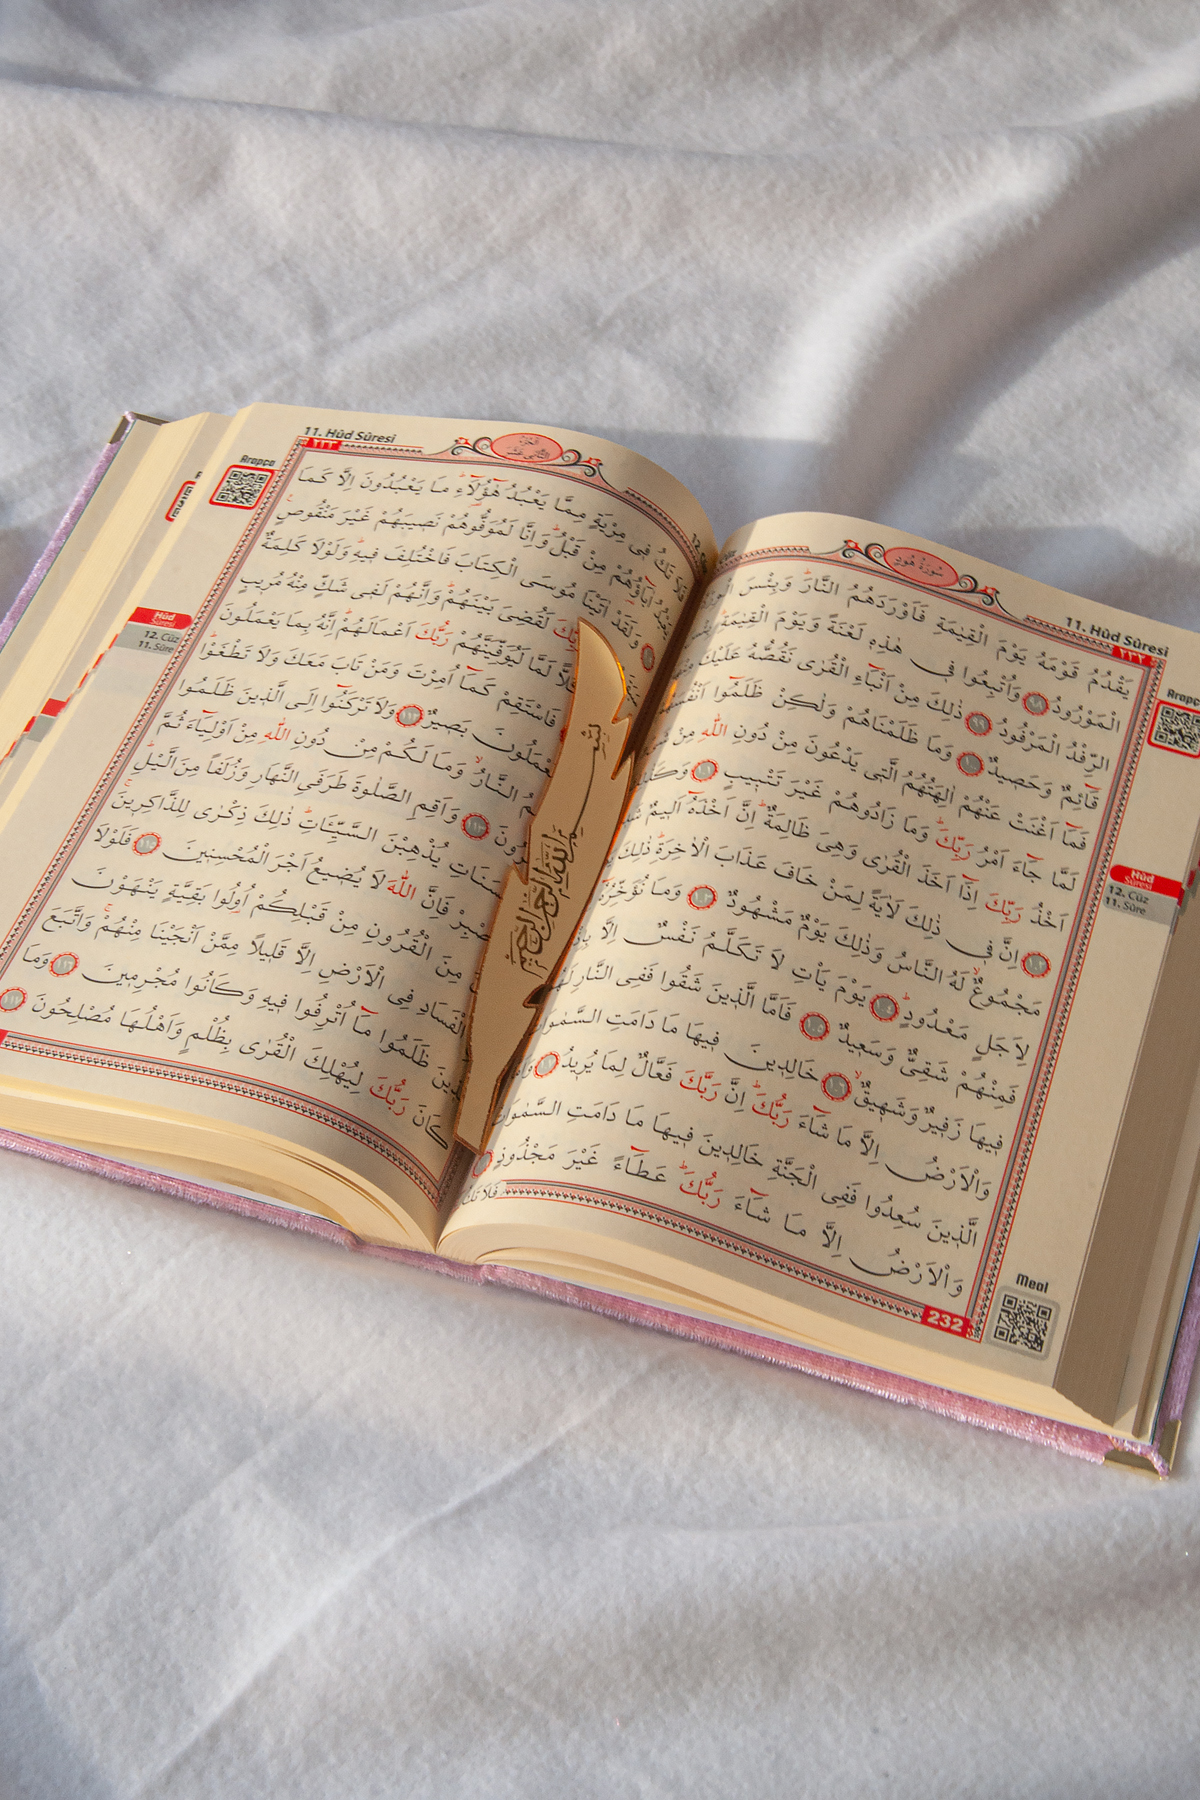 11. Hûd Sûresi
٢٣٢
سُورَةُ هُودٍ
Arapça
يَقْدُمُ قَوْمَهُ يَوْمَ الْقِيٰمَةِ فَاَوْرَدَهُمُ النَّارَۜ وَبِئْسَ
الْمَوْرُودُ ٩٨ وَاُتْبِعُوا فٖي هٰذِهٖ لَعْنَةً وَيَوْمَ الْقِيٰمَةِۜ بِئْسَ
الرِّفْدُ الْمَرْفُودُ ٩٩ ذٰلِكَ مِنْ اَنْبَٓاءِ الْقُرٰى نَقُصُّهُ عَلَيْكَ
قَٓائِمٌ وَحَصٖيدٌ ١٠٠ وَمَا ظَلَمْنَاهُمْ وَلٰكِنْ ظَلَمُٓوا
فَمَٓا اَغْنَتْ عَنْهُمْ اٰلِهَتُهُمُ الَّتٖي يَدْعُونَ مِنْ دُونِ اللّٰهِ مِنْ
لَمَّا جَٓاءَ اَمْرُ رَبِّكَۜ وَمَا زَادُوهُمْ غَيْرَ تَتْبٖيبٍ ١٠١
اَخْذُ رَبِّكَ اِذَٓا اَخَذَ الْقُرٰى وَهِيَ ظَالِمَةٌۜ اِنَّ اَخْذَهُٓ اَلٖيمٌ
١٠٢ اِنَّ فٖي ذٰلِكَ لَاٰيَةً لِمَنْ خَافَ عَذَابَ الْاٰخِرَةِۜ ذٰلِكَ
مَجْمُوعٌۙ لَهُ النَّاسُ وَذٰلِكَ يَوْمٌ مَشْهُودٌ ١٠٣ وَمَا
لِاَجَلٍ مَعْدُودٍۜ ١٠٤ يَوْمَ يَأْتِ لَا تَكَلَّمُ نَفْسٌ اِلَّا
فَمِنْهُمْ شَقِيٌّ وَسَعٖيدٌ ١٠٥ فَاَمَّا الَّذٖينَ شَقُوا فَفِي النَّارِ
فٖيهَا زَفٖيرٌ وَشَهٖيقٌۙ ١٠٦ خَالِدٖينَ فٖيهَا مَا دَامَتِ
وَالْاَرْضُ اِلَّا مَا شَٓاءَ رَبُّكَۜ اِنَّ رَبَّكَ فَعَّالٌ لِمَا يُرٖيدُ ١٠٧
الَّذٖينَ سُعِدُوا فَفِي الْجَنَّةِ خَالِدٖينَ فٖيهَا مَا دَامَتِ
وَالْاَرْضُ اِلَّا مَا شَٓاءَ رَبُّكَۜ عَطَٓاءً غَيْرَ مَجْذُوذٍ
Hûd
Sûresi
12. Cüz
11. Sûre
Meal
232
11. Hûd Sûresi
٢٣٣
Arapça
فٖي مِرْيَةٍ مِمَّا يَعْبُدُ هٰٓؤُ۬لَٓاءِۜ مَا يَعْبُدُونَ اِلَّا كَمَا
مِنْ قَبْلُۜ وَاِنَّا لَمُوَفُّوهُمْ نَصٖيبَهُمْ غَيْرَ مَنْقُوصٍ
وَلَقَدْ اٰتَيْنَا مُوسَى الْكِتَابَ فَاخْتُلِفَ فٖيهِۜ وَلَوْلَا كَلِمَةٌ
لَقُضِيَ بَيْنَهُمْۜ وَاِنَّهُمْ لَفٖي شَكٍّ مِنْهُ مُرٖيبٍ
لَمَّا لَيُوَفِّيَنَّهُمْ رَبُّكَ اَعْمَالَهُمْۜ اِنَّهُ بِمَا يَعْمَلُونَ
فَاسْتَقِمْ كَمَٓا اُمِرْتَ وَمَنْ تَابَ مَعَكَ وَلَا تَطْغَوْاۜ
بَصٖيرٌ ١١٢ وَلَا تَرْكَنُٓوا اِلَى الَّذٖينَ ظَلَمُوا
النَّارُۙ وَمَا لَكُمْ مِنْ دُونِ اللّٰهِ مِنْ اَوْلِيَٓاءَ ثُمَّ
١١٣ وَاَقِمِ الصَّلٰوةَ طَرَفَيِ النَّهَارِ وَزُلَفًا مِنَ الَّيْلِۜ
يُذْهِبْنَ السَّيِّـَٔاتِۜ ذٰلِكَ ذِكْرٰى لِلذَّاكِرٖينَۚ
فَاِنَّ اللّٰهَ لَا يُضٖيعُ اَجْرَ الْمُحْسِنٖينَ ١١٥ فَلَوْلَا
مِنَ الْقُرُونِ مِنْ قَبْلِكُمْ اُو۬لُوا بَقِيَّةٍ يَنْهَوْنَ
الْفَسَادِ فِي الْاَرْضِ اِلَّا قَلٖيلًا مِمَّنْ اَنْجَيْنَا مِنْهُمْۚ وَاتَّبَعَ
ظَلَمُوا مَٓا اُتْرِفُوا فٖيهِ وَكَانُوا مُجْرِمٖينَ ١١٦ وَمَا
كَانَ رَبُّكَ لِيُهْلِكَ الْقُرٰى بِظُلْمٍ وَاَهْلُهَا مُصْلِحُونَ ١١٧
Hûd
Sûresi
12. Cüz
11. Sûre
بسم الله الرحمن الرحيم